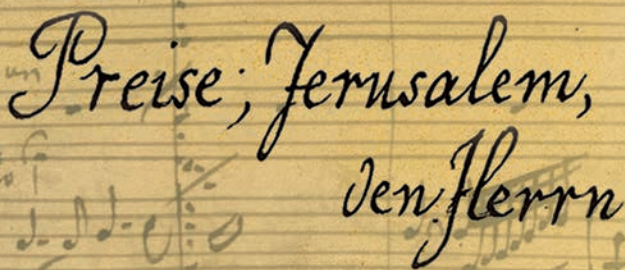 Preise, Jerusalem,
den Herrn